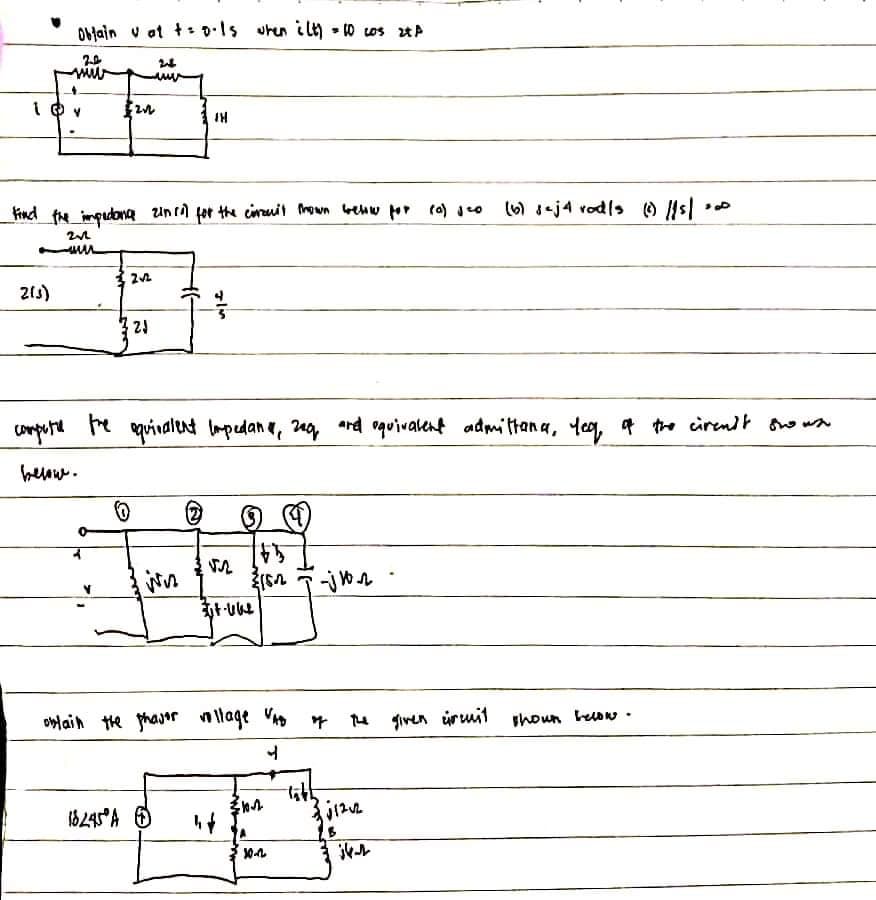 Obtain v at t = 0.1s when i(t) = 10 cos 2t A
2Ω 2Ω
i + v - 2Ω 1H
Find the impedance Zin(s) for the circuit shown below for (a) s=0 (b) s=j4 rad/s (c) |s| = ∞
2Ω
2Ω
Z(s) 4/s
2s
compute the equivalent impedance, Zeq and equivalent admittance, Yeq, of the circuit shown
below.
① ② ③ ④
+ I3
j5Ω 5Ω 15Ω -j10Ω
v
-
obtain the phasor voltage VAB of the given circuit shown below.
Y
10Ω I2↓ j12Ω
18∠45°A I1↓ A B
30Ω j6Ω